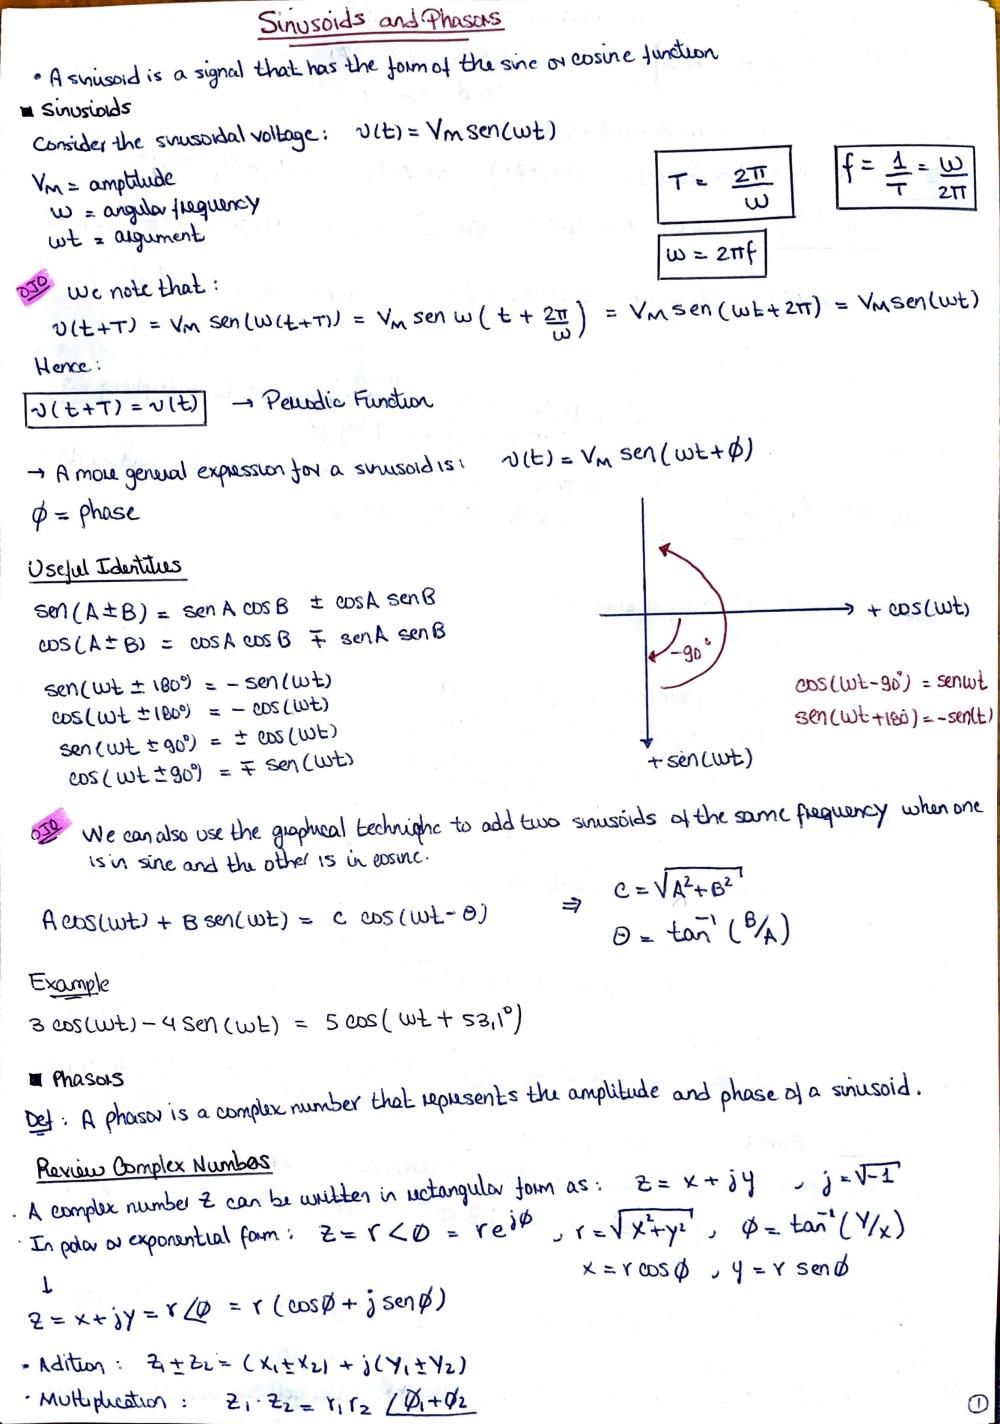 Sinusoids and Phasors
• A sinusoid is a signal that has the form of the sine or cosine function
■ Sinusioids
Consider the sinusoidal voltage: v(t) = VM sen(wt)
VM = amplitude
w = angular frequency
wt = argument
T = 2π/w
f = 1/T = w/2π
w = 2πf
OJO We note that:
v(t+T) = VM sen(w(t+T)) = VM sen w(t + 2π/w) = VM sen(wt+2π) = VM sen(wt)
Hence:
v(t+T) = v(t) → Periodic Function
→ A more general expression for a sinusoid is: v(t) = VM sen(wt+ϕ)
ϕ = phase
Useful Identities
sen(A±B) = sen A cos B ± cosA senB
cos(A±B) = cosA cosB ∓ senA senB
sen(wt ± 180º) = - sen(wt)
cos(wt ±180º) = - cos(wt)
sen(wt ±90º) = ± cos(wt)
cos(wt ±90º) = ∓ sen(wt)
+ cos(wt)
-90°
cos(wt-90°) = senwt
sen(wt+180) = -sen(t)
+ sen(wt)
OJO We can also use the graphical technighe to add two sinusoids of the same frequency when one
is in sine and the other is in cosine.
A cos(wt) + B sen(wt) = C cos(wt-θ) ⇒ C = √A²+B²
θ = tan⁻¹(B/A)
Example
3 cos(wt) - 4 sen(wt) = 5 cos(wt + 53,1º)
■ Phasors
Def: A phasor is a complex number that represents the amplitude and phase of a sinusoid.
Review Complex Numbers
. A complex number z can be written in rectangular form as: z = x + jy , j = √-1
· In polar or exponential form: z = r <ϕ = re^jϕ , r = √x²+y² , ϕ = tan⁻¹(y/x)
x = r cosϕ , y = r senϕ
↓
z = x+jy = r∠ϕ = r(cosϕ + j senϕ)
• Adition: z1 ± z2 = (x1±x2) + j(y1±y2)
• Multiplication: z1·z2 = r1r2 ∠ϕ1+ϕ2
1